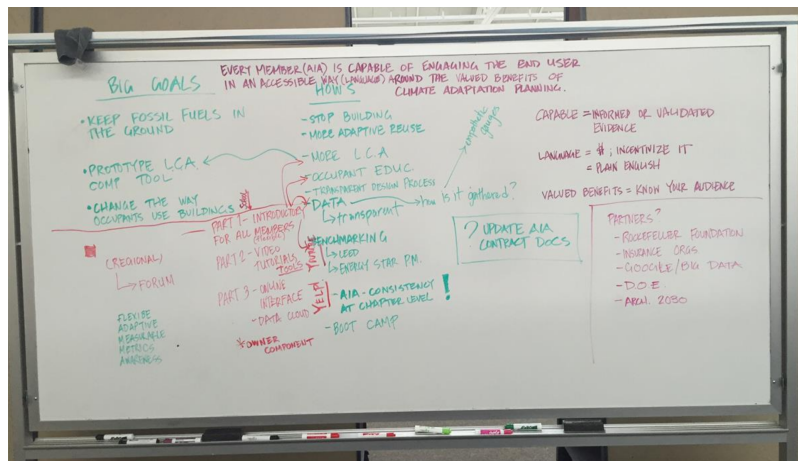 EVERY MEMBER (AIA) IS CAPABLE OF ENGAGING THE END USER
IN AN ACCESSIBLE WAY (LANGUAGE) AROUND THE VALUED BENEFITS OF
CLIMATE ADAPTATION PLANNING.
BIG GOALS
• KEEP FOSSIL FUELS IN
THE GROUND
• PROTOTYPE LCA
COMP TOOL
• CHANGE THE WAY
OCCUPANTS USE BUILDINGS
HOW'S
- STOP BUILDING
- MORE ADAPTIVE REUSE
- MORE LCA
- OCCUPANT EDUC
- TRANSPARENT DESIGN PROCESS
- DATA
transparent
how is it gathered?
empathetic
BENCHMARKING
LEED
ENERGY STAR PM.
- AIA - CONSISTENCY
AT CHAPTER LEVEL!
- BOOT CAMP
PART 1 - INTRODUCTORY
FOR ALL MEMBERS
PART 2 - VIDEO
TUTORIALS
TOOLS
PART 3 - ONLINE
INTERFACE
- DATA CLOUD
YELP
* OWNER
COMPONENT
(REGIONAL)
FORUM
FLEXIBLE
ADAPTIVE
MEASURABLE
METRICS
AWARENESS
CAPABLE = INFORMED OR VALIDATED
EVIDENCE
LANGUAGE = $; INCENTIVIZE IT
= PLAIN ENGLISH
VALUED BENEFITS = KNOW YOUR AUDIENCE
? UPDATE AIA
CONTRACT DOCS
PARTNERS?
- ROCKEFELLER FOUNDATION
- INSURANCE ORGS
- GOOGLE/BIG DATA
- D.O.E
- ARCH. 2030